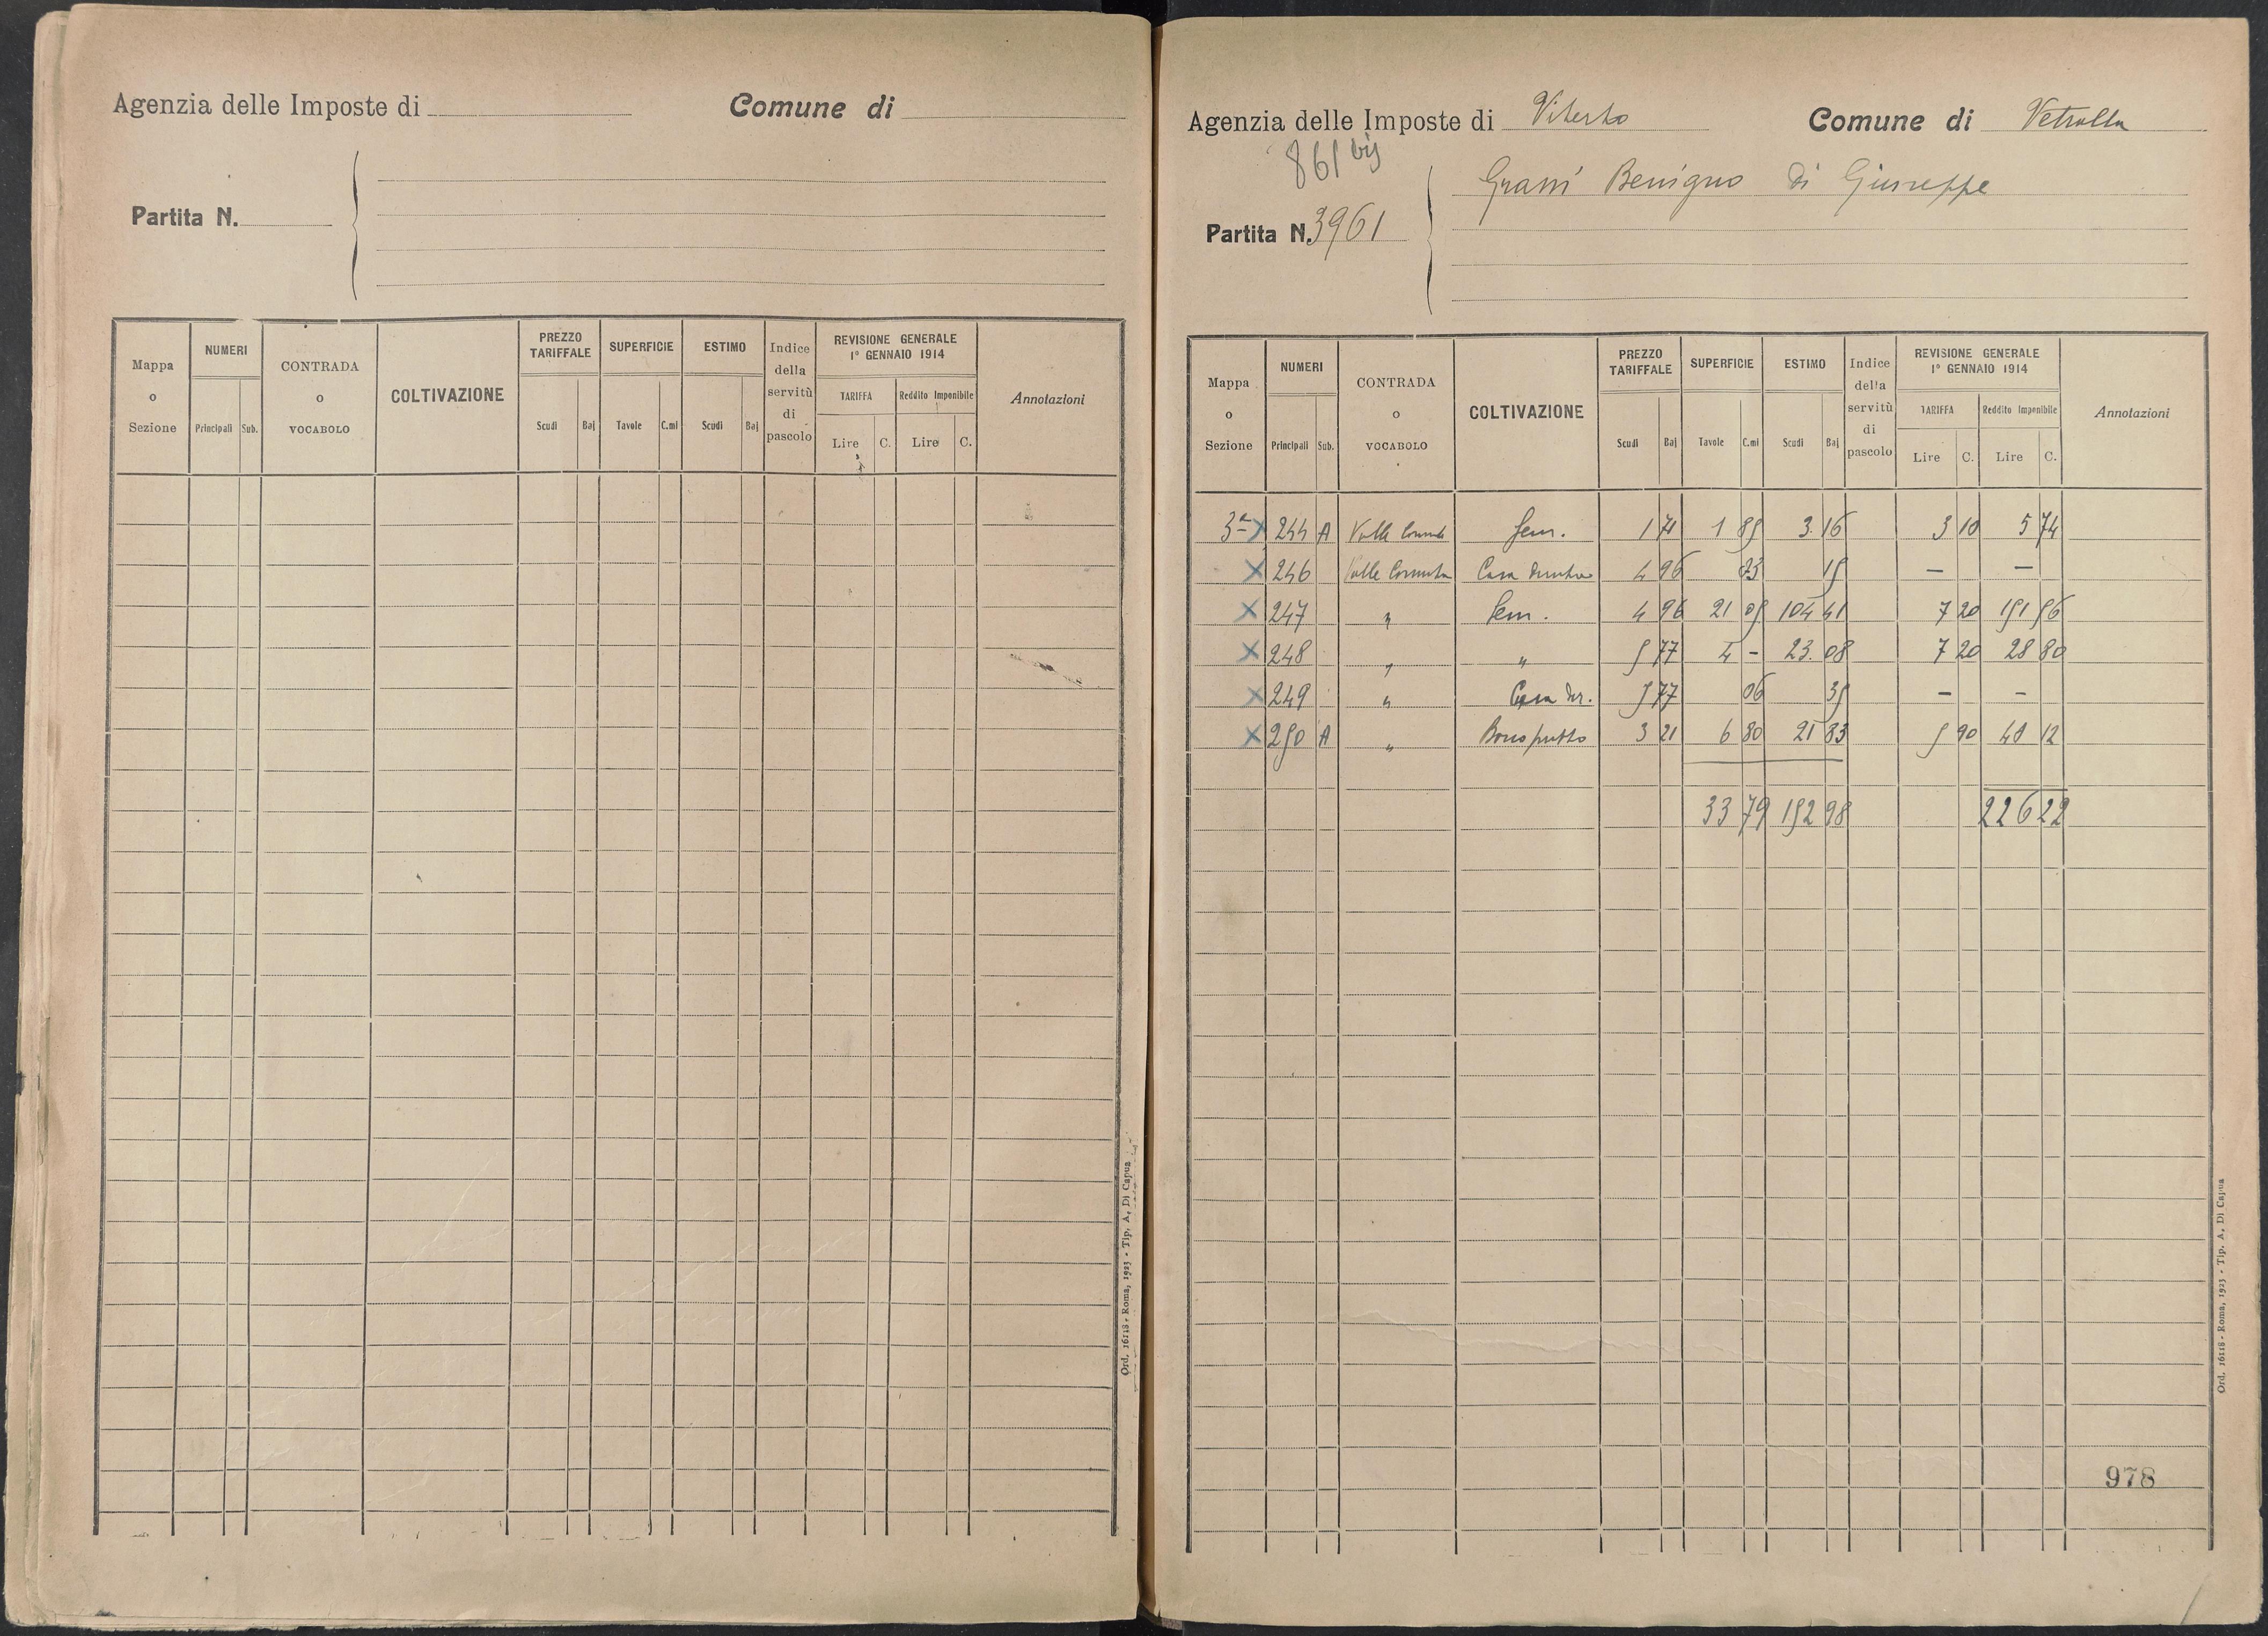 Agenzia delle Imposte di
Comune di
Partita N.
Mappa o Sezione
NUMERI
Principali Sub.
CONTRADA o VOCABOLO
COLTIVAZIONE
PREZZO TARIFFALE
Scudi Baj
SUPERFICIE
Tavole C.mi
ESTIMO
Scudi Baj
Indice della servitù di pascolo
REVISIONE GENERALE 1° GENNAIO 1914
TARIFFA Reddito Imponibile
Lire C. Lire C.
Annotazioni
Ord. 16118 - Roma, 1923 - Tip. A. Di Capua
Agenzia delle Imposte di Viterbo
Comune di Vetralla
861 bis
Partita N. 3961
Grassi Benigno di Giuseppe
Mappa o Sezione
NUMERI
Principali Sub.
CONTRADA o VOCABOLO
COLTIVAZIONE
PREZZO TARIFFALE
Scudi Baj
SUPERFICIE
Tavole C.mi
ESTIMO
Scudi Baj
Indice della servitù di pascolo
REVISIONE GENERALE 1° GENNAIO 1914
TARIFFA Reddito Imponibile
Lire C. Lire C.
Annotazioni
3ª X 244 A Valle Cornuta Sem. 1 71 1 85 3 16 3 10 5 74
X 246 Valle Cornuta Casa 4 96 03 15 — —
X 247 " Sem. 4 96 21 05 104 41 7 20 151 56
X 248 " " 5 77 4 - 23.08 7 20 28 80
X 249 " Casa dir. 5 77 06 35 — —
X 250 A " 3 21 6 80 21 83 5 90 40 12
33 79 152 98 226 22
978
Ord. 16118 - Roma, 1923 - Tip. A. Di Capua